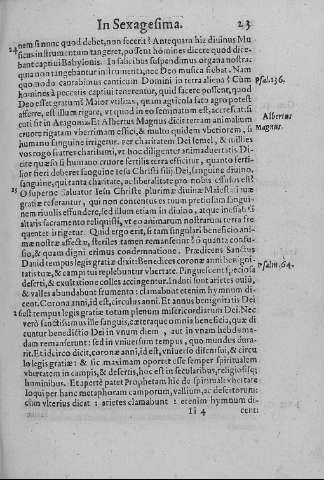 In Sexagesima. 23
nem si nunc quod debet, non fecerit? Antequam hic diuinus Mu
24 sicus instrumentum tangeret, possent homines dicere quod dice-
bant captiui Babylonis. In salicibus suspendimus organa nostra:
quia non tangebantur instrumenta, nec Deo musica fiebat. Nam
quo modo cantabimus canticum Domini in terra aliena? Cum Psal. 136.
homines à peccatis captiui tenerentur, quid facere possent, quod
Deo esset gratum? Maior vtilitas, quam agricola sato agro potest
afferre, est illum rigare, vt quod in eo seminatum est, accrescat: si
cuti sit in Aragonia. Et Albertus Magnus dicit terram animalium Albertus
cruore rigatam vberrimam effici, & multo quidem vberiorem, si Magnus.
humano sanguine irrigetur. Per charitatem Dei semel, & millies
vos rogo fratres charissimi, vt hoc diligenter animaduertatis. Di-
cite quæso si humano cruore fertilis terra efficitur, quanto ferti-
lior fieri deberet sanguine Iesu Christi filij Dei, sanguine diuino,
sanguine, qui tanta charitate, ac liberalitate pro nobis effusus est?
25 O superne Saluator Iesu Christe plurimæ diuinæ Maiestati tuæ
gratiæ referantur, qui non contentus es tuum pretiosum sangui-
nem riuulis effundere, sed illum etiam in diuino, atque inefabili
altaris sacramento reliquisti, vt eo animarum nostrarum terra fre
quenter irrigetur. Quid ergo erit, si tam singulari beneficio ani-
mæ nostræ affectæ, steriles tamen remanserint? ò quanta confu-
sio, & quam digni erimus condemnatione. Prædicens Sanctus
Dauid tempus legis gratiæ dixit: Benedices coronæ anni benigni-
tatis tuæ, & campi tui replebuntur vbertate. Pinguescent speciosa Psalm. 64.
deserti, & exultatione colles accingentur. Induti sunt arietes ouiũ,
& valles abundabunt frumento: clamabunt etenim hymnum di-
cent. Corona anni, id est, circulus anni. Et annus benignitatis Dei
est tempus legis gratiæ totum plenum misericordiarum Dei. Nec
verò sanctissimus ille sanguis, cæteraque omnia beneficia, quæ di
cuntur benedictio Dei in vnum diem, aut in vnam hebdoma-
dam remanserunt: sed in vniuersum tempus, quo mundus dura-
rit. Et idcirco dicit, coronæ anni, id est, vniuerso discursui, & circu
lo legis gratiæ: & sic maximam oportet esse semper spiritualem
vbertatem in campis, & desertis, hoc est in secularibus, religiosisq;
hominibus. Et apertè patet Prophetam hic de spirituali vbertate
loqui per hanc metaphoram camporum, vallium, ac desertorum:
cum vlterius dicat: arietes clamabunt: etenim hymnum di-
Ii 4 cent: